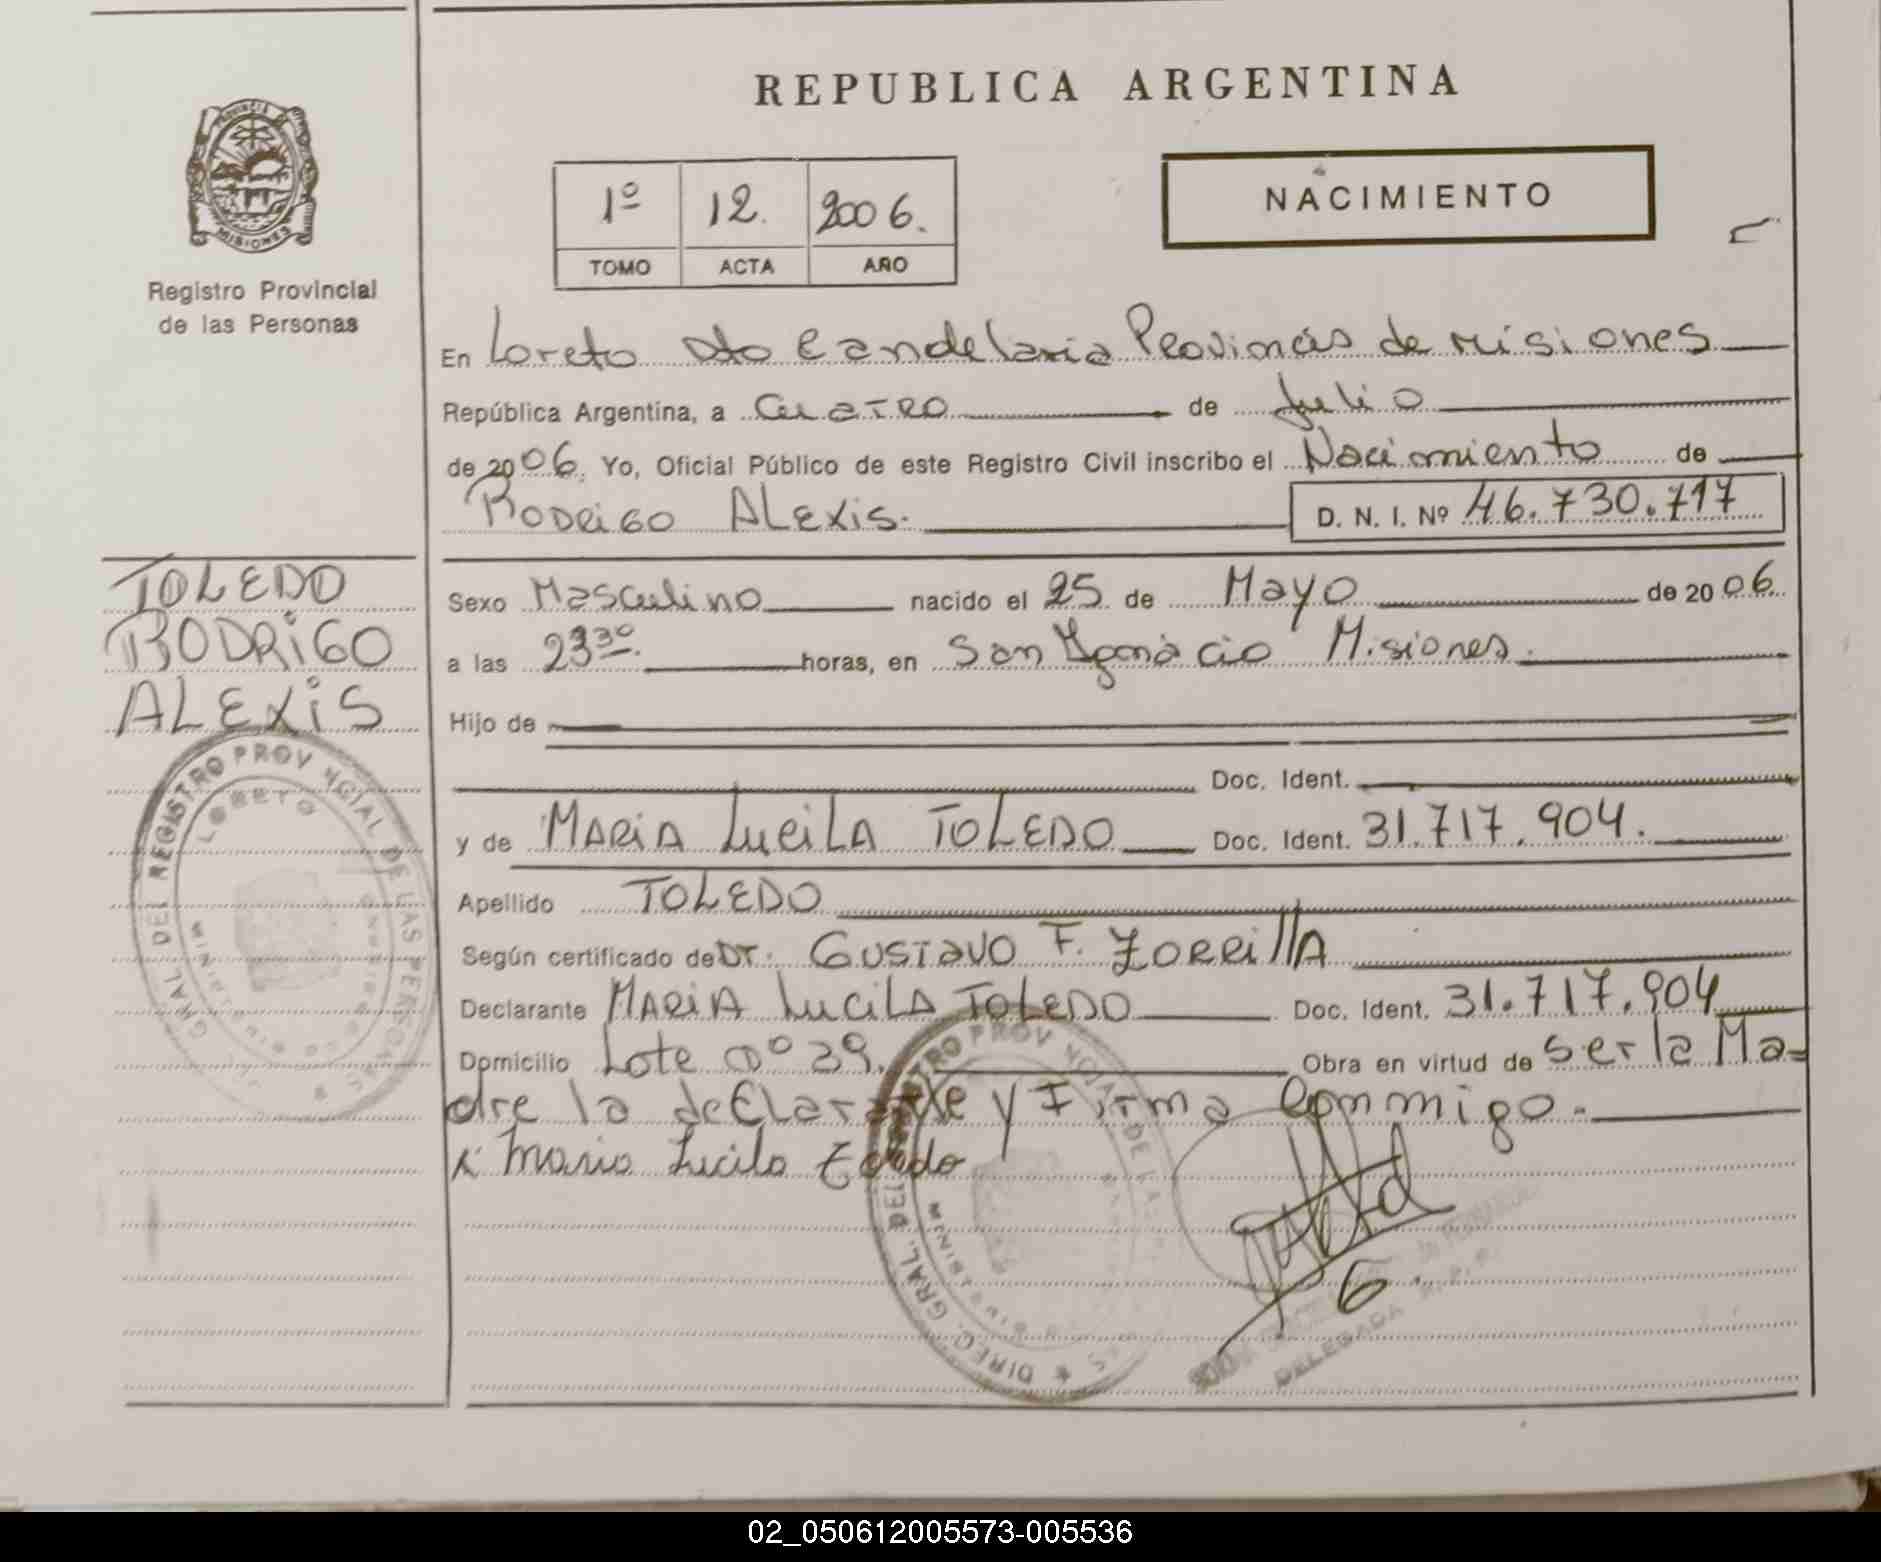 REPUBLICA ARGENTINA
PROVINCIA DE
MISIONES
Registro Provincial
de las Personas
1º 12. 2006.
TOMO ACTA AÑO
NACIMIENTO
En Loreto Dto Candelaria Provincias de Misiones
República Argentina, a Cuatro de Julio
de 2006. Yo, Oficial Público de este Registro Civil inscribo el Nacimiento de
RODRIGO ALEXIS. D. N. I. Nº 46.730.717
TOLEDO
RODRIGO
ALEXIS
Sexo Masculino nacido el 25 de Mayo de 2006.
a las 23 30. horas, en San Ignacio Misiones.
Hijo de
Doc. Ident.
y de MARIA LUCILA TOLEDO Doc. Ident. 31.717.904.
Apellido TOLEDO
Según certificado de Dr. GUSTAVO F. ZORRILLA
Declarante MARIA LUCILA TOLEDO Doc. Ident. 31.717.904
Domicilio Lote nº 39. Obra en virtud de ser la Ma=
dre la declarante y Firma Conmigo.
x Maria Lucila Toledo
GRAL DEL REGISTRO PROVINCIAL DE LAS PERSONAS
LORETO
DIREC. GRAL. DEL REGISTRO PROVINCIAL DE LAS
DELEGADA
02_050612005573-005536